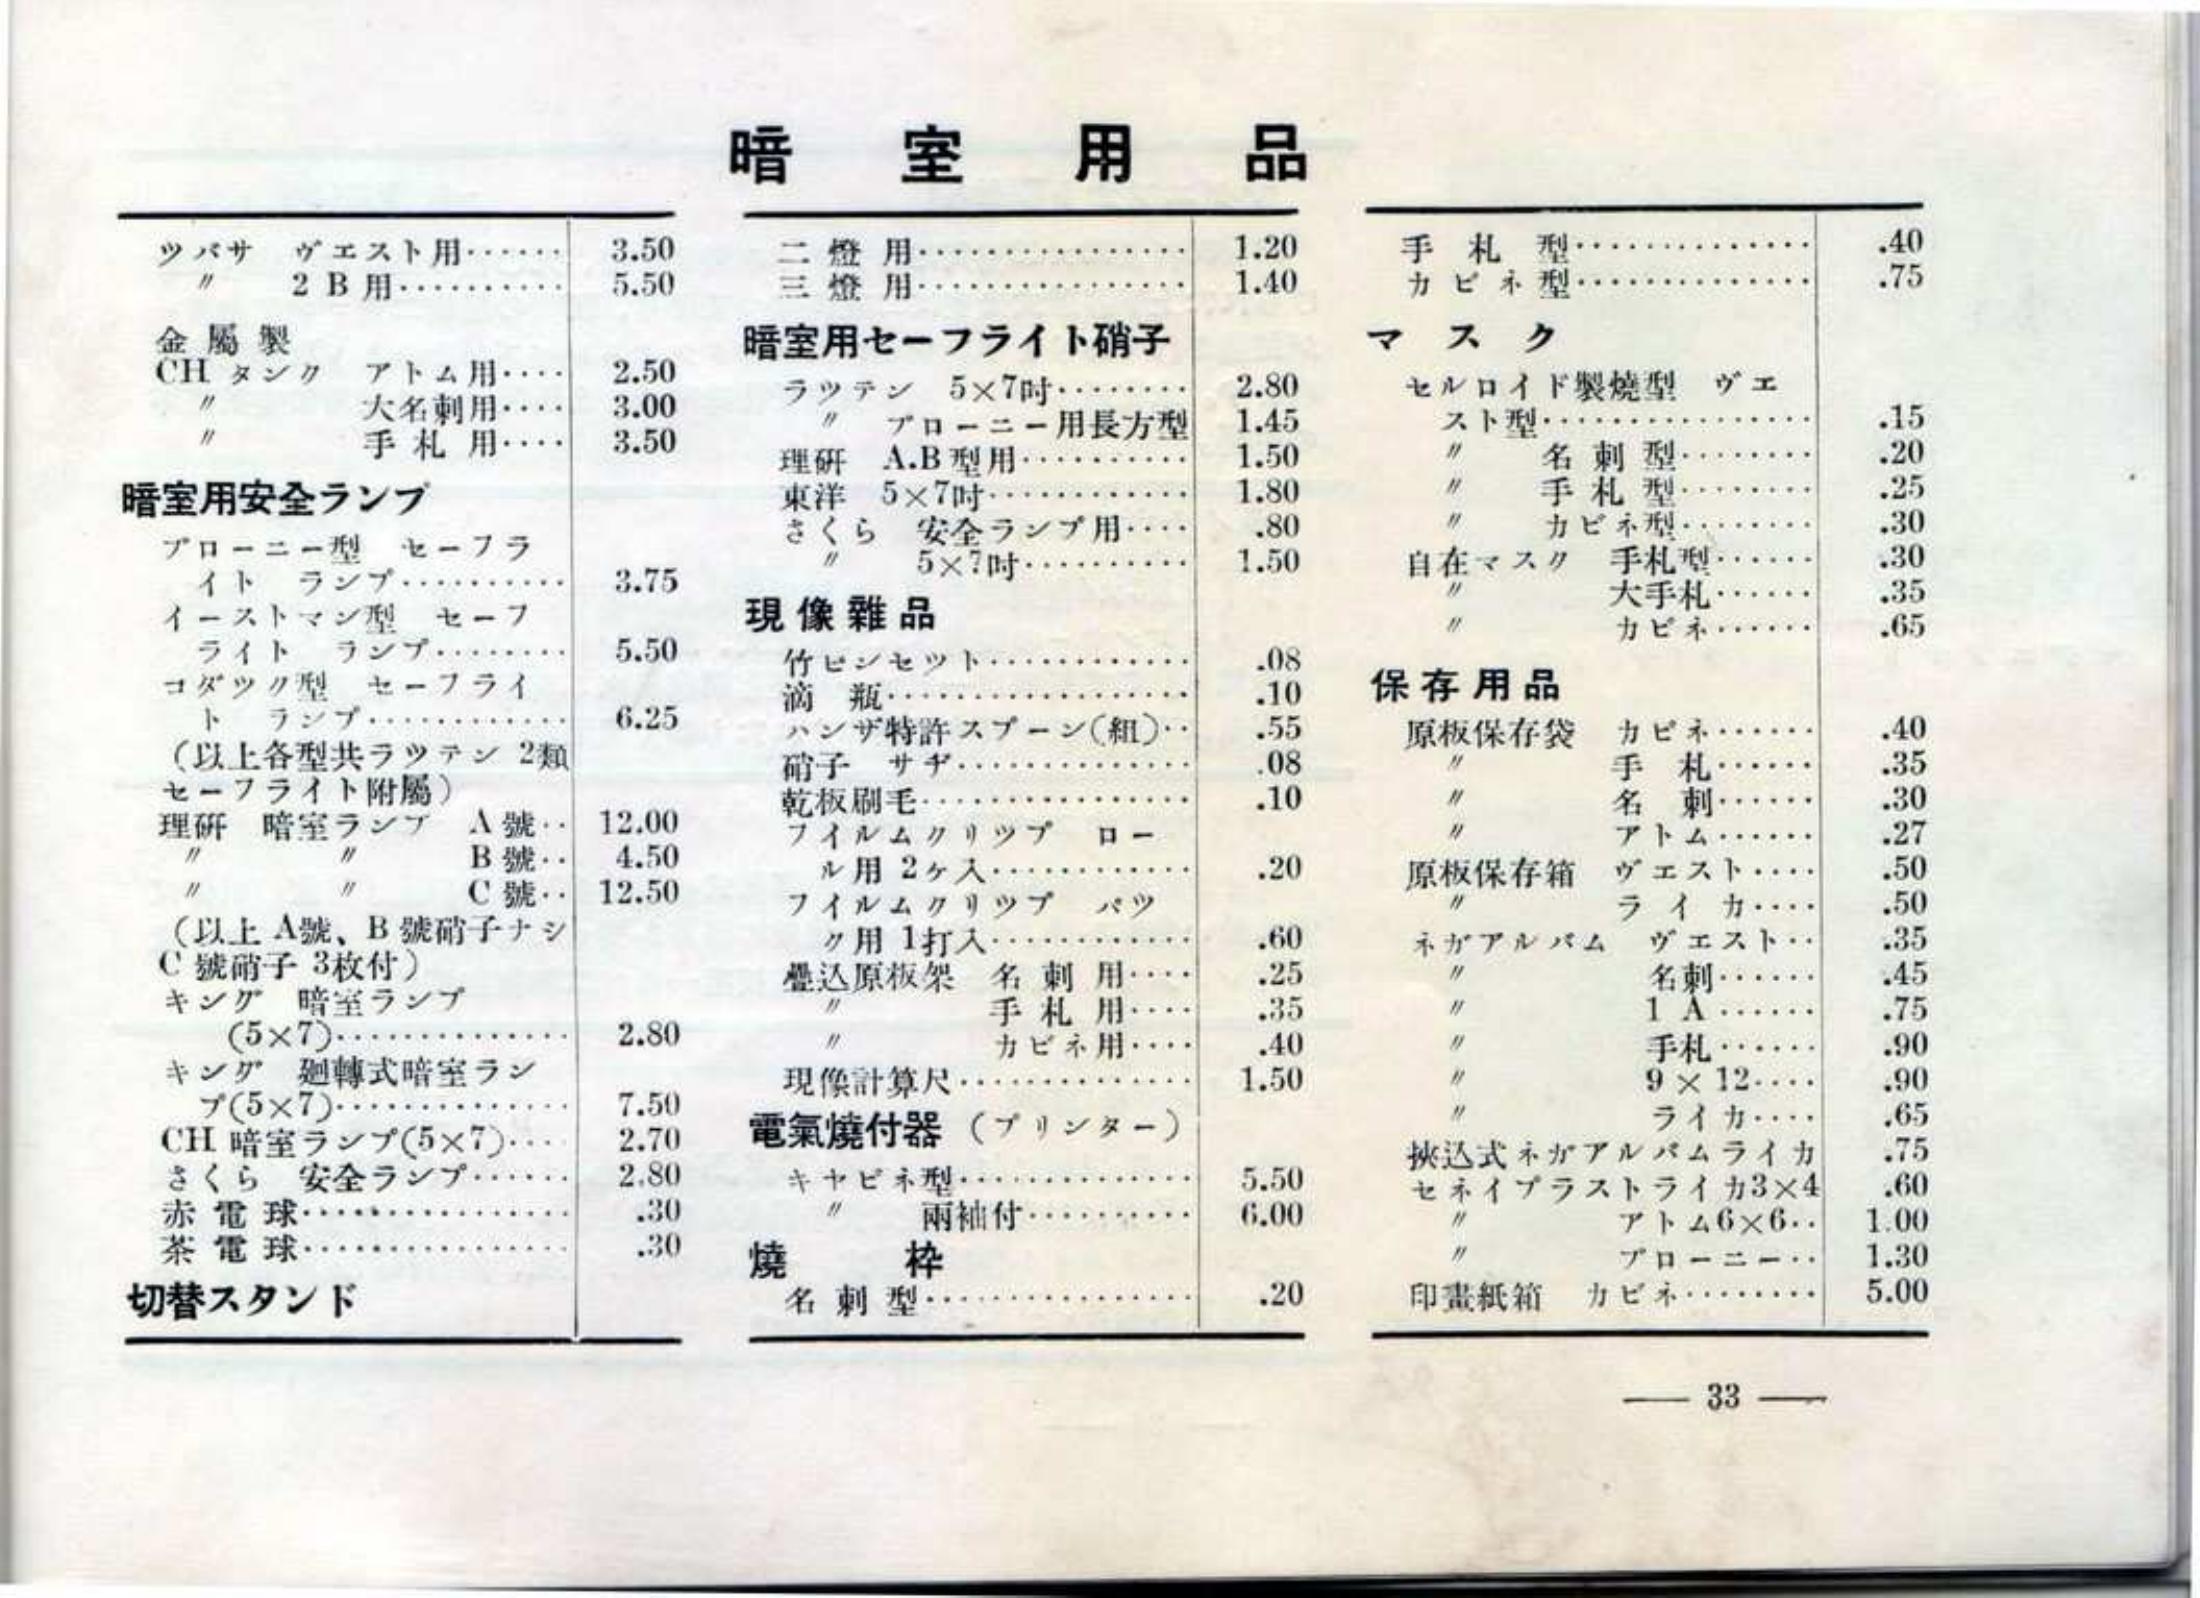 暗室用品
ツバサ ヴエスト用…… 3.50
〃 2B用………… 5.50
金屬製
CHタンク アトム用…… 2.50
〃 大名刺用…… 3.00
〃 手札用…… 3.50
暗室用安全ランプ
ブローニー型 セーフラ
イト ランプ………… 3.75
イーストマン型 セーフ
ライト ランプ……… 5.50
コダツク型 セーフライ
ト ランプ………… 6.25
(以上各型共ラツテン 2類
セーフライト附屬)
理硏 暗室ランプ A號‥ 12.00
〃 〃 B號‥ 4.50
〃 〃 C號‥ 12.50
(以上 A號、B號硝子ナシ
C號硝子 3枚付)
キング 暗室ランプ
(5×7)…………… 2.80
キング 廻轉式暗室ラン
プ(5×7)…………… 7.50
CH暗室ランプ(5×7)…… 2.70
さくら 安全ランプ…… 2.80
赤電球…………… .30
茶電球…………… .30
切替スタンド
二燈用…………… 1.20
三燈用…………… 1.40
暗室用セーフライト硝子
ラツテン 5×7吋……… 2.80
〃 ブローニー用長方型 1.45
理硏 A.B型用………… 1.50
東洋 5×7吋………… 1.80
さくら 安全ランプ用…… .80
〃 5×7吋………… 1.50
現像雜品
竹ピンセツト………… .08
滴瓶…………… .10
ハンザ特許スプーン(組)‥ .55
硝子 サヂ………… .08
乾板刷毛…………… .10
フイルムクリツプ ロー
ル用2ケ入………… .20
フイルムクリツプ パツ
ク用1打入………… .60
疊込原板架 名刺用…… .25
〃 手札用…… .35
〃 カビネ用…… .40
現像計算尺…………… 1.50
電氣燒付器(プリンター)
キヤビネ型…………… 5.50
〃 兩袖付………… 6.00
燒枠
名刺型…………… .20
手札型…………… .40
カビネ型…………… .75
マスク
セルロイド製燒型 ヴエ
スト型…………… .15
〃 名刺型……… .20
〃 手札型……… .25
〃 カビネ型……… .30
自在マスク 手札型…… .30
〃 大手札…… .35
〃 カビネ…… .65
保存用品
原板保存袋 カビネ…… .40
〃 手札…… .35
〃 名刺…… .30
〃 アトム…… .27
原板保存箱 ヴエスト…… .50
〃 ライカ…… .50
ネガアルバム ヴエスト‥ .35
〃 名刺…… .45
〃 1A…… .75
〃 手札…… .90
〃 9×12…… .90
〃 ライカ…… .65
挾込式ネガアルバムライカ .75
セネイプラストライカ3×4 .60
〃 アトム6×6‥ 1.00
〃 ブローニー‥ 1.30
印畫紙箱 カビネ……… 5.00
— 33 —